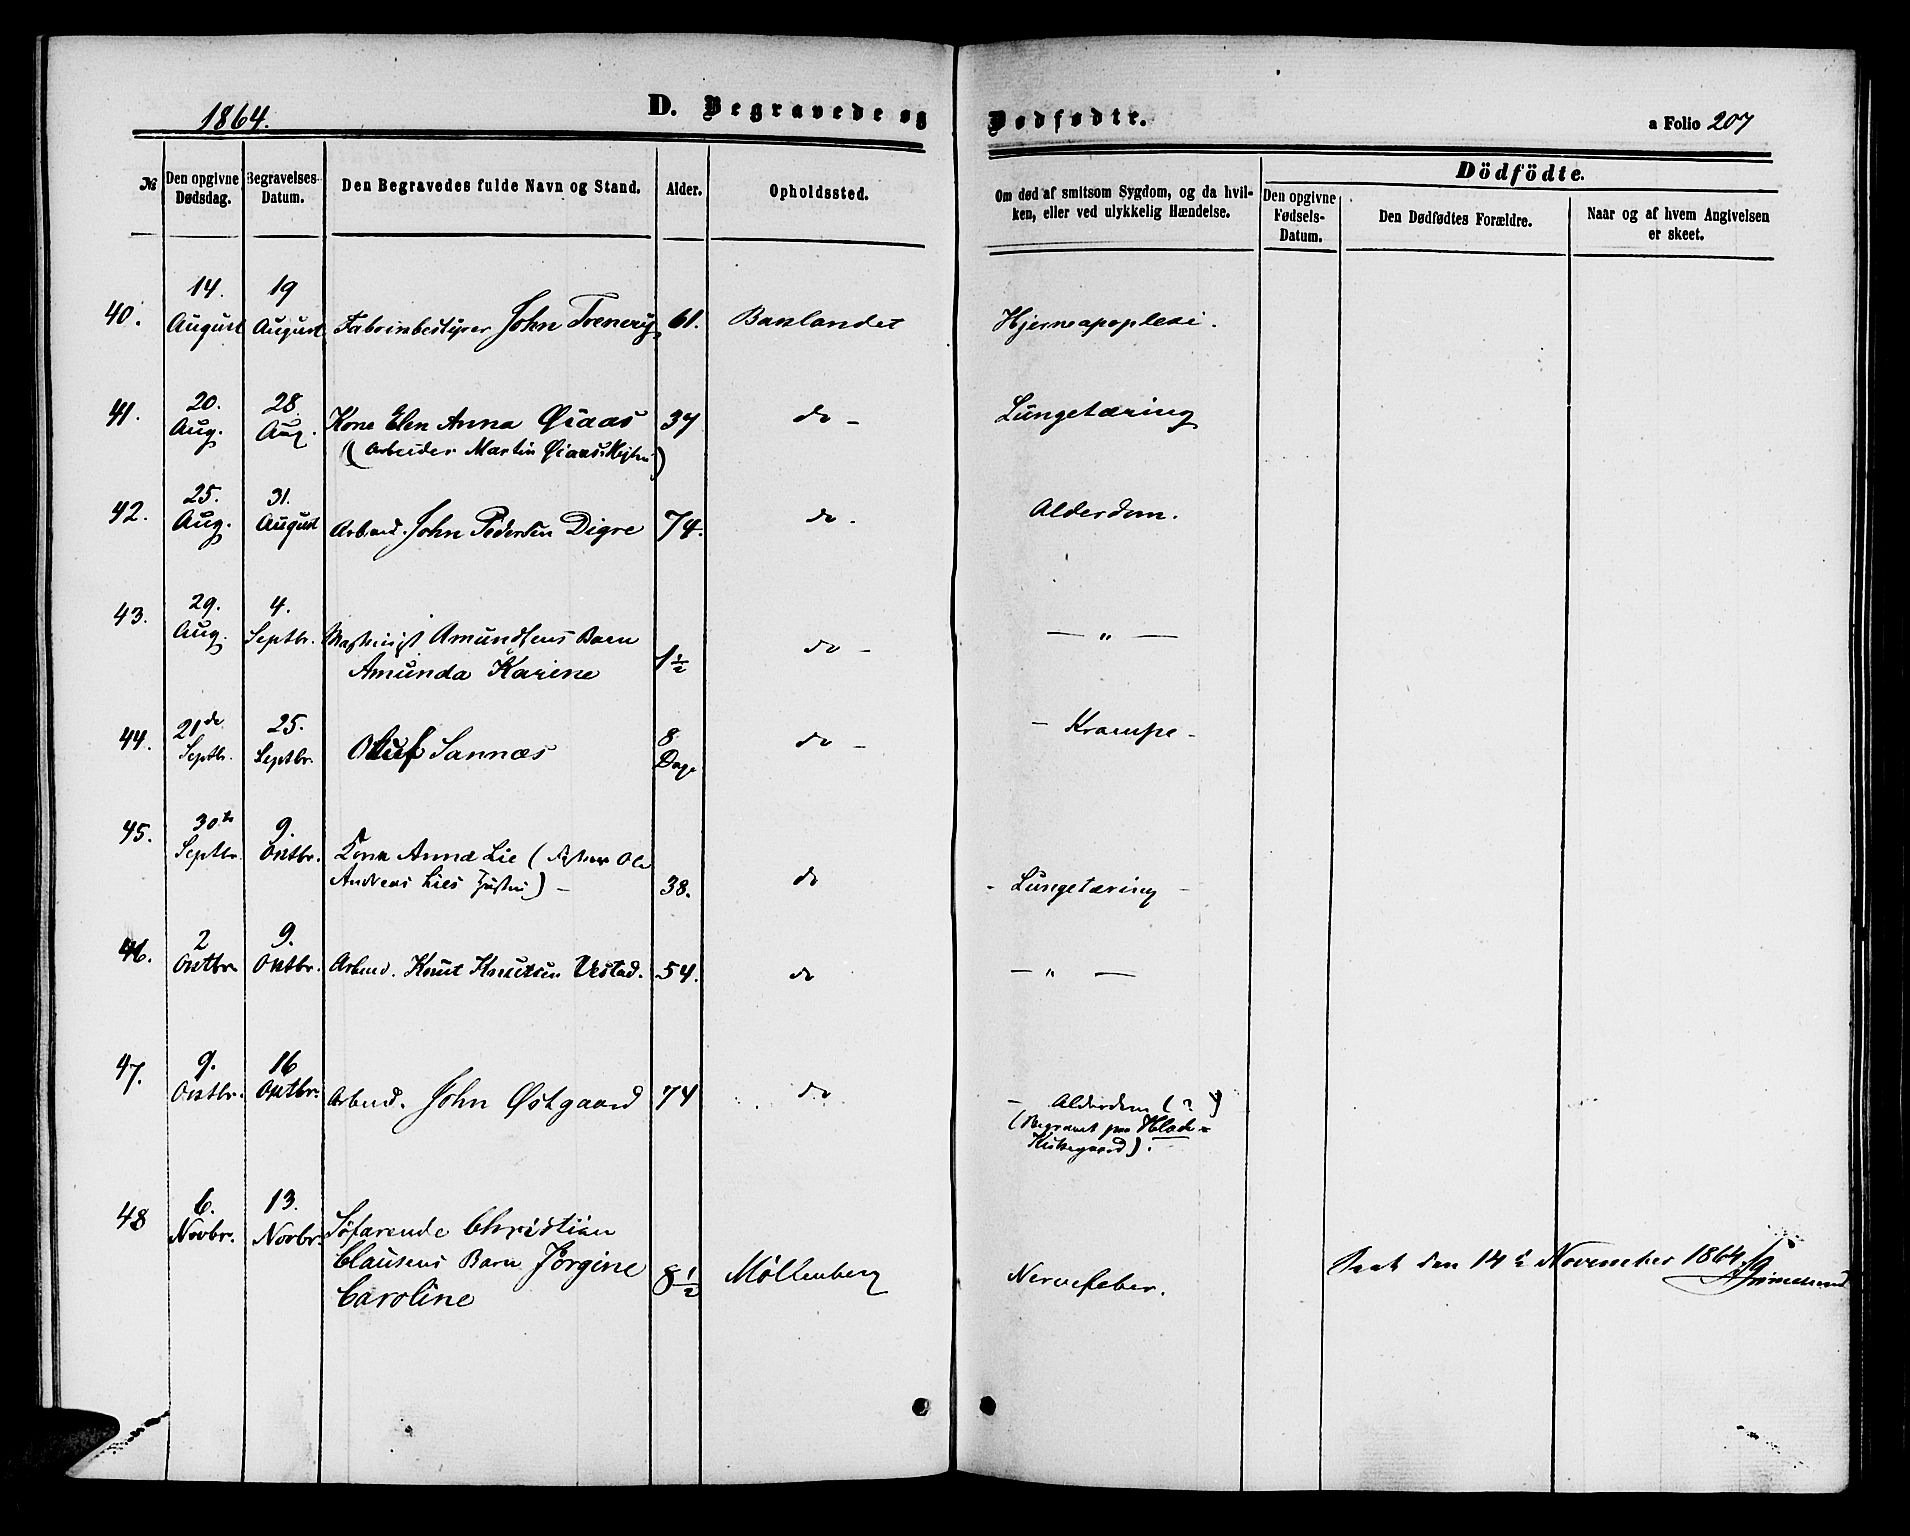 1864.
D. Begravede og Dødfødte.
a Folio 207
№
Den opgivne Dødsdag.
Begravelses-Datum.
Den Begravedes fulde Navn og Stand.
Alder.
Opholdssted.
Om død af smitsom Sygdom, og da hvil-
ken, eller ved ulykkelig Hændelse.
Dödfödte.
Den opgivne Fødsels-Datum.
Den Dødfødtes Forældre.
Naar og af hvem Angivelsen er skeet.
40. 14. August 19 August Fabrikbestyrer John Trenery 61. Baklandet Hjerneapoplexi.
41. 20. Aug. 28. Aug. Kone Elen Anna Øiaas 37 do - Lungetæring
(Arbeider Martin Øiaas
42. 25. Aug. 31. August Arbeid. John Pedersen Digre 74. do. Alderdom.
43. 29. Aug. 4. Septbr. Amundsens Barn
Amunda Karine 1½ do - — " —
44. 21de Septbr. 25. Septbr. Oluf Sannæs 8 Dage do - - Krampe -
45. 30te Septbr. 9. Oktbr. Kone Anna Lie ( Ole
Andreas Lies Hustru) - 38. do - Lungetæring -
46. 2 Oktbr. 9. Oktbr. Arbeid. Knut Knutsen Vestad. 54. do — " —
47. 9. Oktbr. 16 Oktbr. Arbeid. John Østgaard 74 do - Alderdom (?)
(Begravet paa Hlade
Kirkegaard).
48 6. Novbr. 13. Novbr. Søfarende Christian
Clausens Barn Jørgine
Caroline 8½ Møllenberg Nervefeber.
Seet den 14de November 1864